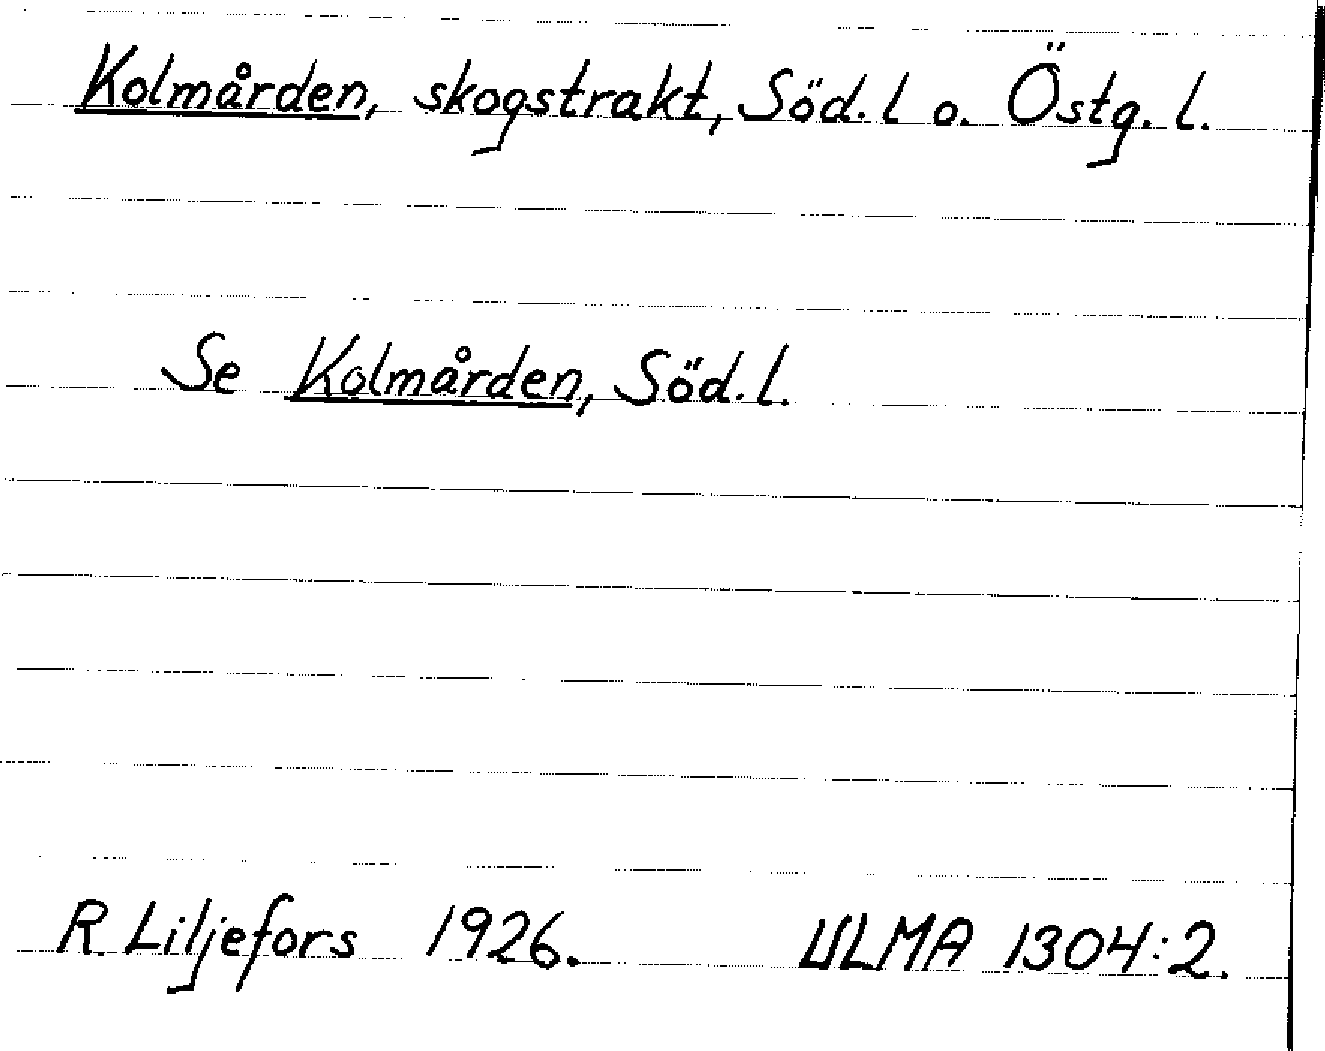 Kolmården, skogstrakt, Söd. l o. Östg. l.
Se Kolmården, Söd. l.
R. Liljefors 1926. ULMA 1304:2.